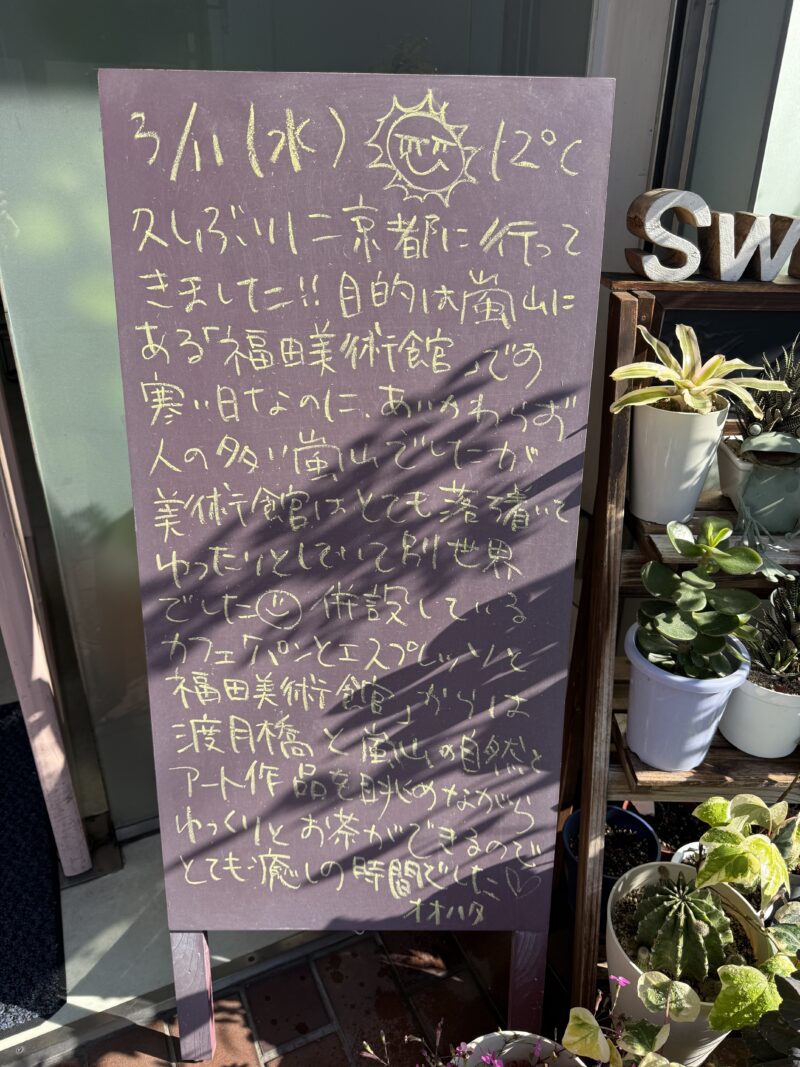 3/11(水) 12℃
久しぶりに京都に行って
きました!! 目的は嵐山に
ある「福田美術館」です
寒い日なのに、あいかわらず
人の多い嵐山でしたが
美術館はとても落ち着いて
ゆったりとしていて別世界
でした 併設している
カフェ「パンとエスプレッソと
福田美術館」からは
渡月橋と嵐山の自然と
アート作品を眺めながら
ゆっくりとお茶ができるので
とても癒しの時間でした♡
オオハタ
SW